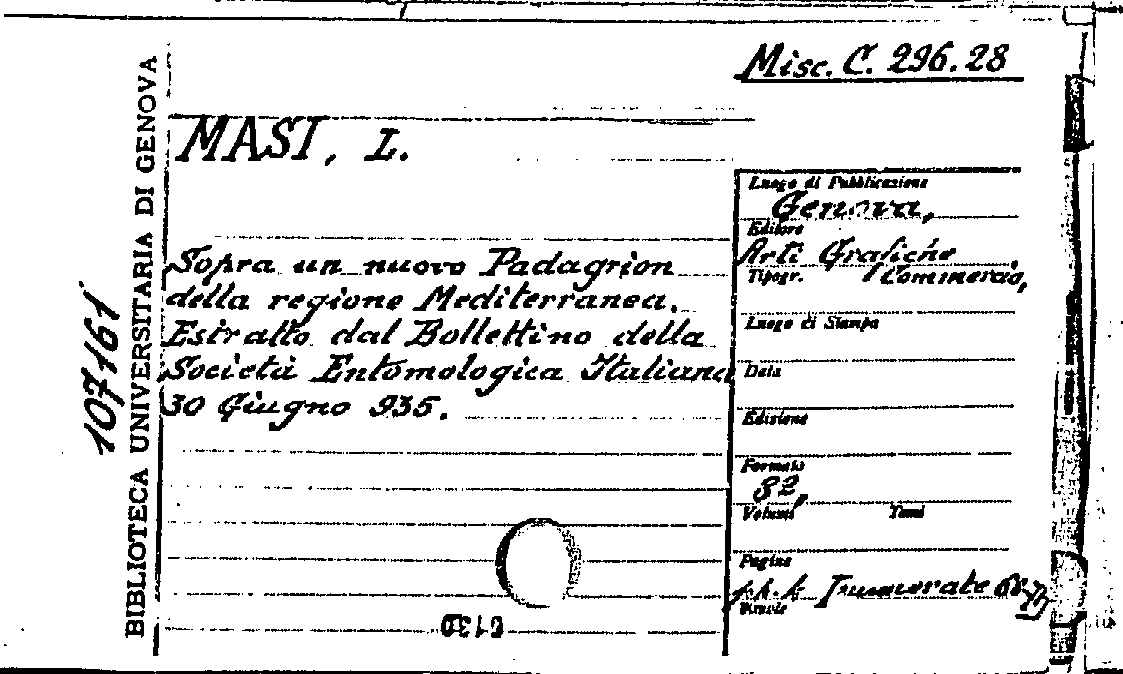 Misc. C. 296.28
MASI, L.
Sopra un nuovo Padagrion
della regione Mediterranea.
Estratto dal Bollettino della
Società Entomologica Italiana
30 Giugno 935.
107161
BIBLIOTECA UNIVERSITARIA DI GENOVA
Luogo di Pubblicazione
Genova,
Editore
Arti Grafiche
Tipogr. Commercio,
Luogo di Stampa
Data
Edizione
Formato
Volumi Tomi
Pagine
numerate